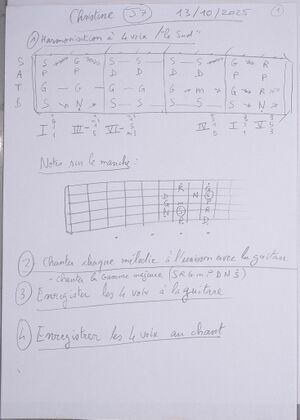 Christine S7 13/10/2025 1
1 Harmonisation à 4 voix "le Sud"
S S G S S S S G R
A P P D D D D P P
T G G G S S G m G R
B S N S S S S S N
I III- VI- IV I V
Notes sur le manche :
2 Chanter chaque mélodie à l'unisson avec la guitare
- chanter la Gamme majeure (S R G m P D N S)
3 Enregistrer les 4 voix à la guitare
4 Enregistrer les 4 voix au chant